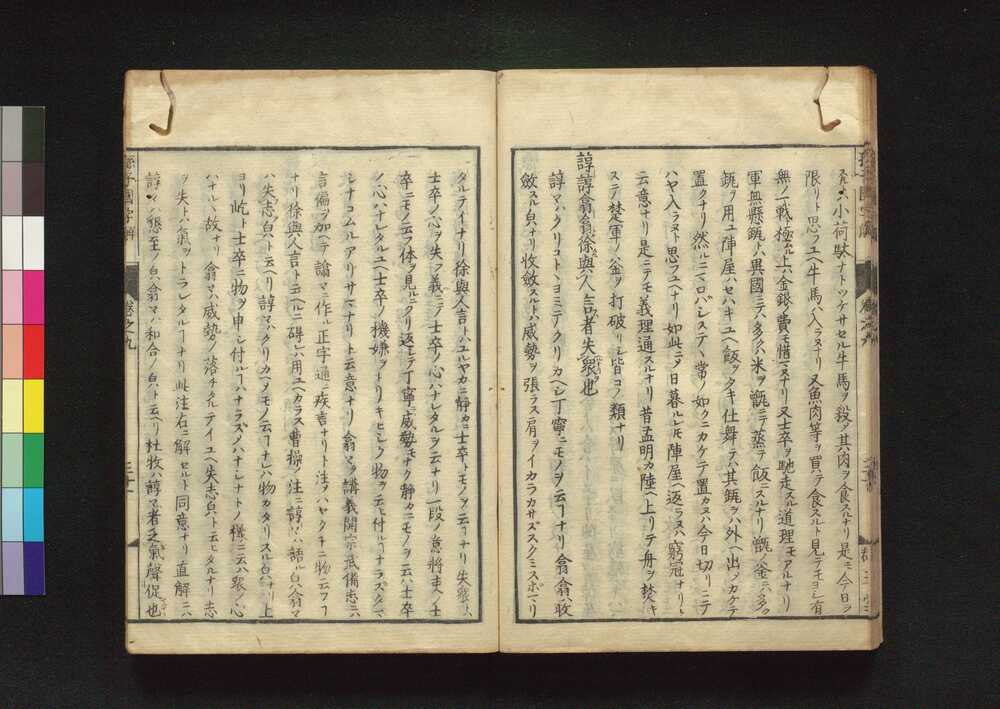 又ハ小荷駄ナトツケサセル牛馬ヲ殺シ其肉ヲ食スルナリ是モ今日ヲ
限リト思フユヘ牛馬ハ入ラヌナリ又魚肉等ヲ買テ食スルト見テモヨシ有
無ノ一戰ニ極ル上ハ金銀ノ費モ惜マヌナリ又士卒ヲ馳走スル道理モアルナリ
軍無懸缻トハ異國ニテハ多クハ米ヲ甑ニテ蒸テ飯ニスルナリ甑釜ニハ多ク
缻ヲ用ユ陣屋ハセハキユヘ飯ヲタキ仕舞テハ其缻ヲハ外ヘ出シカケテ
置クナリ然ルニマロバシステヽ常ノ如クニカケテ置カヌハ今日切リニテ
ハヤ入ラヌト思フユヘナリ如此ニシテ日暮ルレトモ陣屋ヘ返ラヌハ窮寇ナリト
云意ナリ是ニテモ義理通スルナリ昔孟明カ陸ヘ上リテ舟ヲ焚キ
ステ楚軍ノ釜ヲ打破リシ皆コノ類ナリ
諄諄翕翕徐與人言者失衆也
諄々ハクリコトヽヨミテクリカヘシ丁寧ニモノヲ云フナリ翕翕ハ收
斂スル皃ナリ收斂スルトハ威勢ヲ張ラス肩ヲイカラカサズスクミスホマリ
タルテイナリ徐與人言トハユルヤカニ靜カニ士卒トモノヲ云フナリ失衆トハ
士卒ノ心ヲ失フ義ニテ士卒ノ心ハナレタルヲ云ナリ一段ノ意將ノ士
卒ニモノ云フ体ヲ見ルニクリ返シテ丁寧ニ威勢モナク靜カニモノヲ云ハ士卒
ノ心ハナレタルユヘ士卒ノ機嫌ヲトリキヒシク物ヲ云ヒ付ルコトナラスクミ
シナコムルアリサマナリト云意ナリ翕々ヲ講義開宗武備志ニハ
言偏ヲ加ヘテ諭々ニ作ル正字通ニ疾言ナリト注ノハヤクチニ物云フコト
ナリ徐與人言ト云ヘルニ碍レハ用ユヘカラス曹操ノ注ニ諄々ハ語ル皃翕々
ハ失志皃ト云ヘリ諄々ハクリカヘシモノ云フコトナレハ物カタリスル皃ハナリ上
ヨリ屹ト士卒ニ物ヲ申シ付ルコトハナラズノハナレナトノ樣ニ云ハ衆ノ心
ハナルヽ故ナリ翕々ハ威勢ノ落チタルテイユヘ失志皃ト云ヒタルナリ志
ヲ失トハ氣ヲトラレタルコトナリ此注右ニ解セルト同意ナリ直解ニハ
諄々ハ懇至ノ皃翕々ハ和合ノ皃ト云ヘリ杜牧ハ諄々者乏氣聲促也
孫子國字解
卷之九
三十一